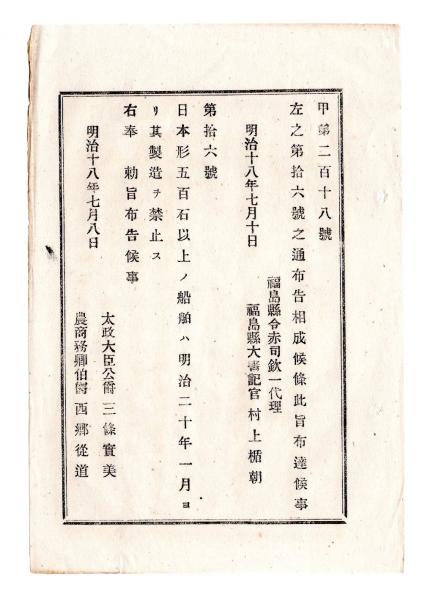 甲第二百十八號
左之第拾六號之通布告相成候條此旨布達候事
明治十八年七月十日
福島縣令赤司欽一代理
福島縣大書記官村上楯朝
第拾六號
日本形五百石以上ノ船舶ハ明治二十年一月ヨ
リ其製造ヲ禁止ス
右奉　勅旨布告候事
明治十八年七月八日
太政大臣公爵三條實美
農商務卿伯爵西鄉從道